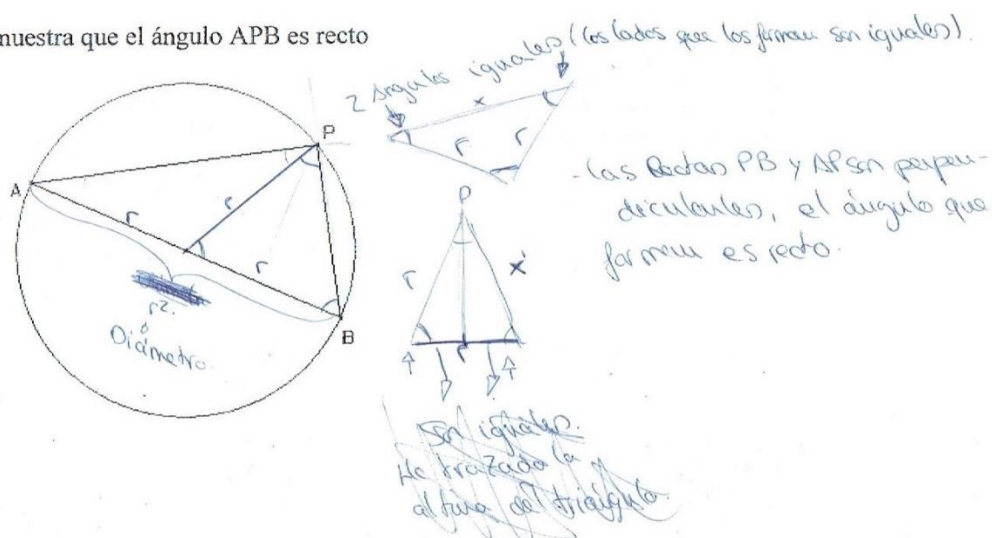 muestra que el ángulo APB es recto
2 ángulos iguales (los lados que los forman son iguales).
x
r
r
P
A
r
r
r
r2.
ó
Diámetro.
B
- las Rectas PB y AP son perpen-
diculares, el ángulo que
forman es recto.
P
r
x
r
Son iguales.
He trazado la
altura del triángulo.